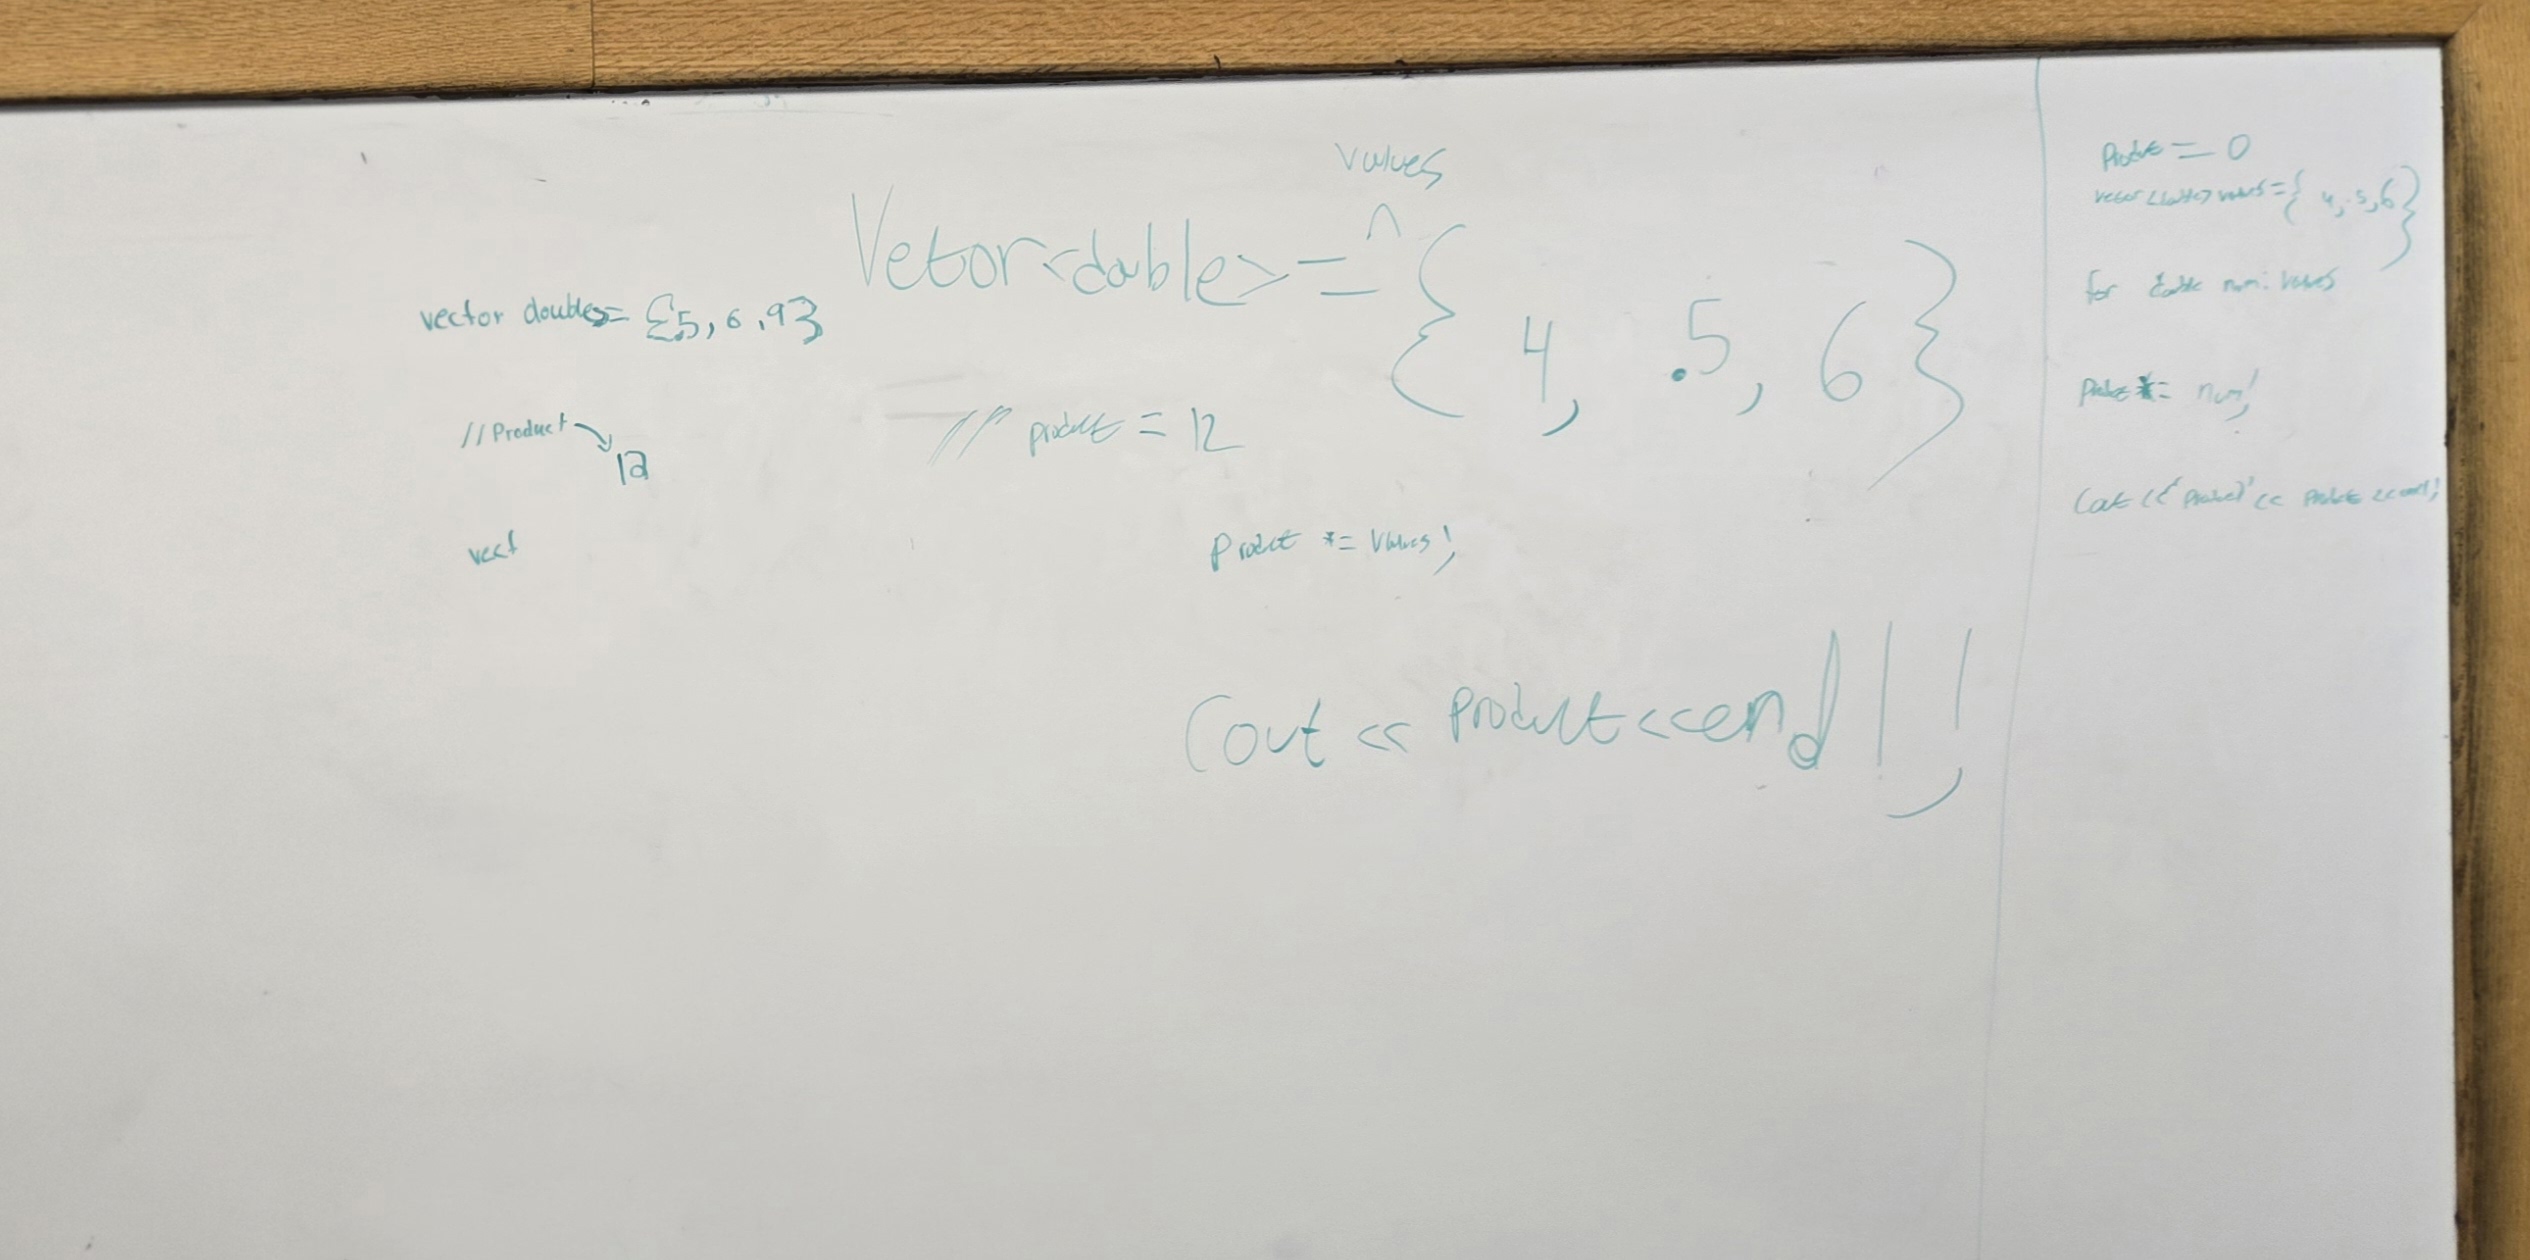 vector doubles= {5, 6, 9}
//Product
12
vect
values
Vector<double> = ^ { 4, .5, 6 }
// product = 12
Product *= Values;
Cout << Product <<endl;
Product = 0
vector<double> values = { 4, .5, 6 }
for double num: values
Product *= num;
Cout << "product" << product << endl;